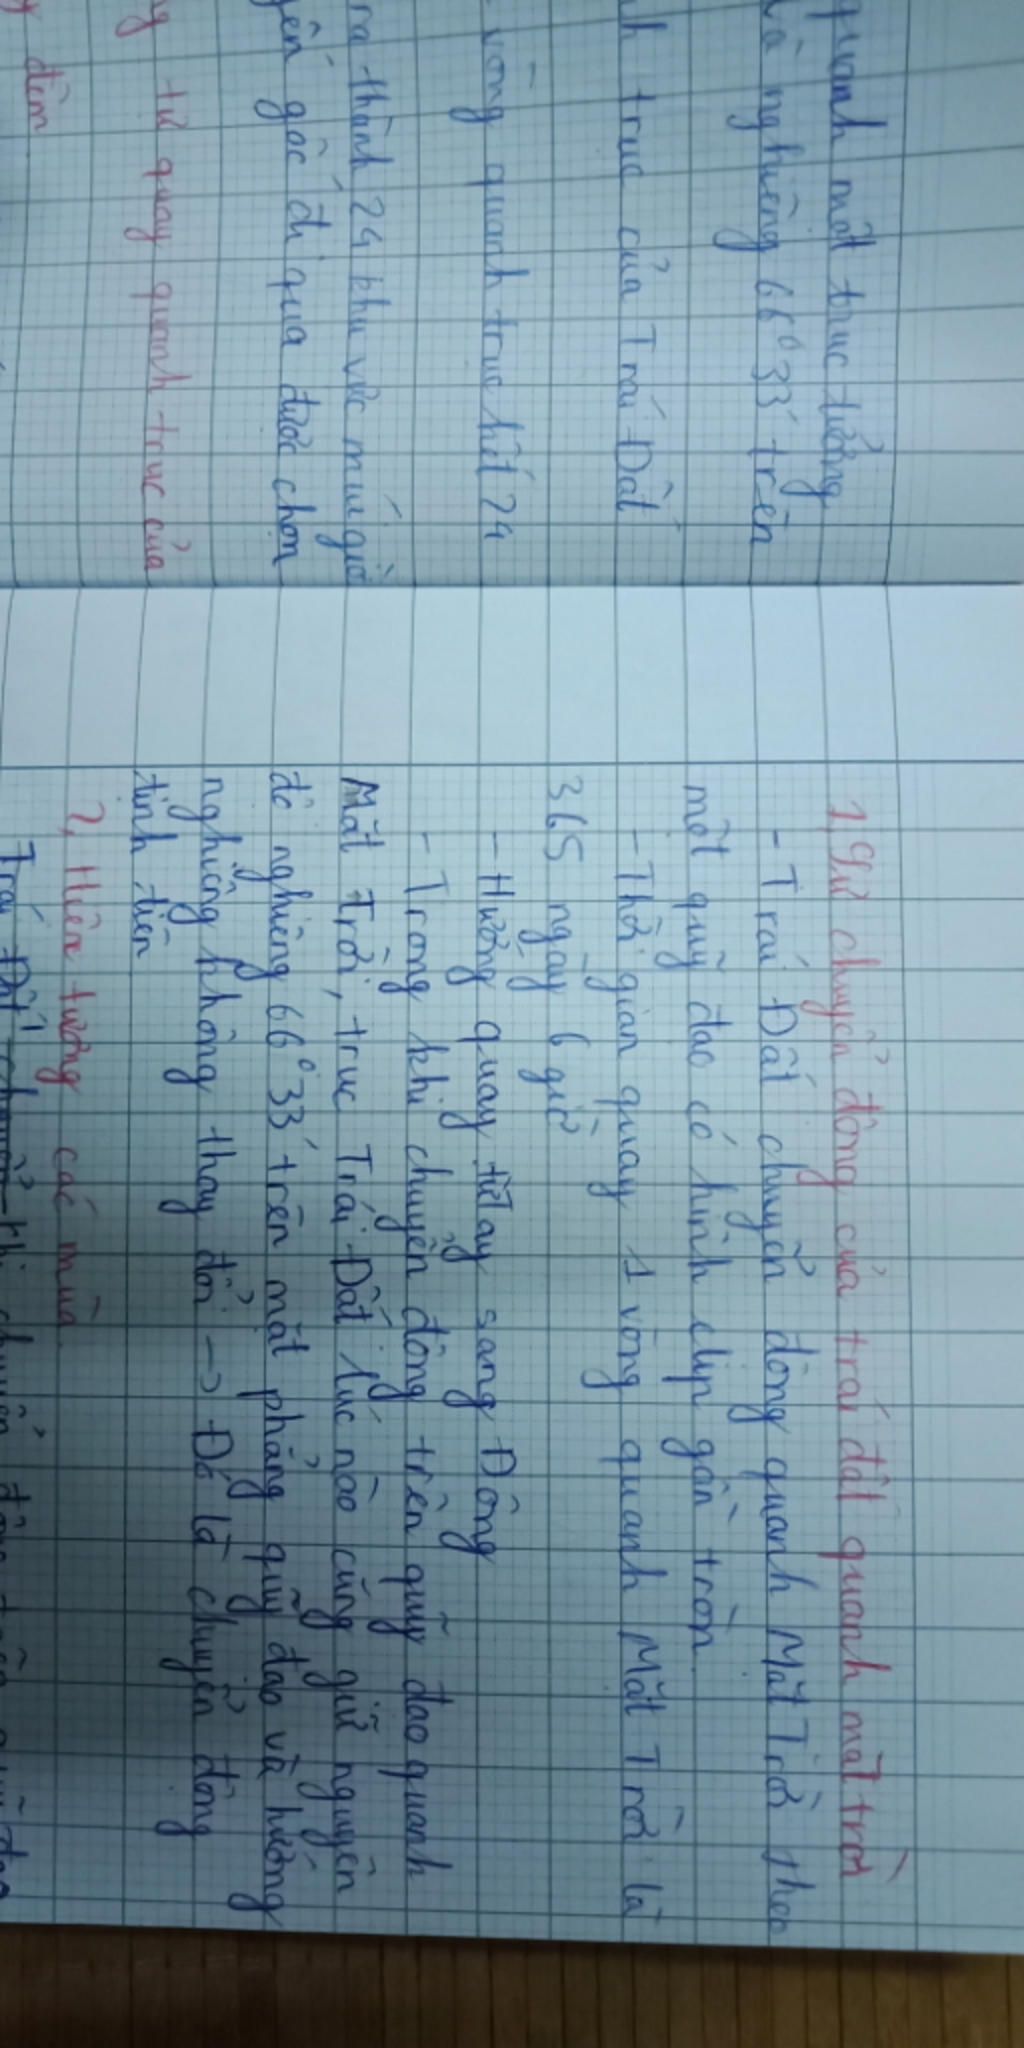 quanh một trục tưởng
là nghiêng 66°33' trên
h trục của Trái Đất
vòng quanh trục hết 24
ra thành 24 khu vực múi giờ
yến gốc đi qua được chọn
g tự quay quanh trục của
đêm
1, Sự chuyển động của trái đất quanh mặt trời
- Trái Đất chuyển động quanh Mặt Trời theo
một quỹ đạo có hình elip gần tròn.
- Thời gian quay 1 vòng quanh Mặt Trời là
365 ngày 6 giờ
- Hướng quay từ Tây sang Đông
- Trong khi chuyển động trên quỹ đạo quanh
Mặt Trời, trục Trái Đất lúc nào cũng giữ nguyên
độ nghiêng 66°33' trên mặt phẳng quỹ đạo và hướng
nghiêng không thay đổi → Đó là chuyển động
tịnh tiến
2, Hiện tượng các mùa
Trái Đất chuyển động trên quỹ đạo